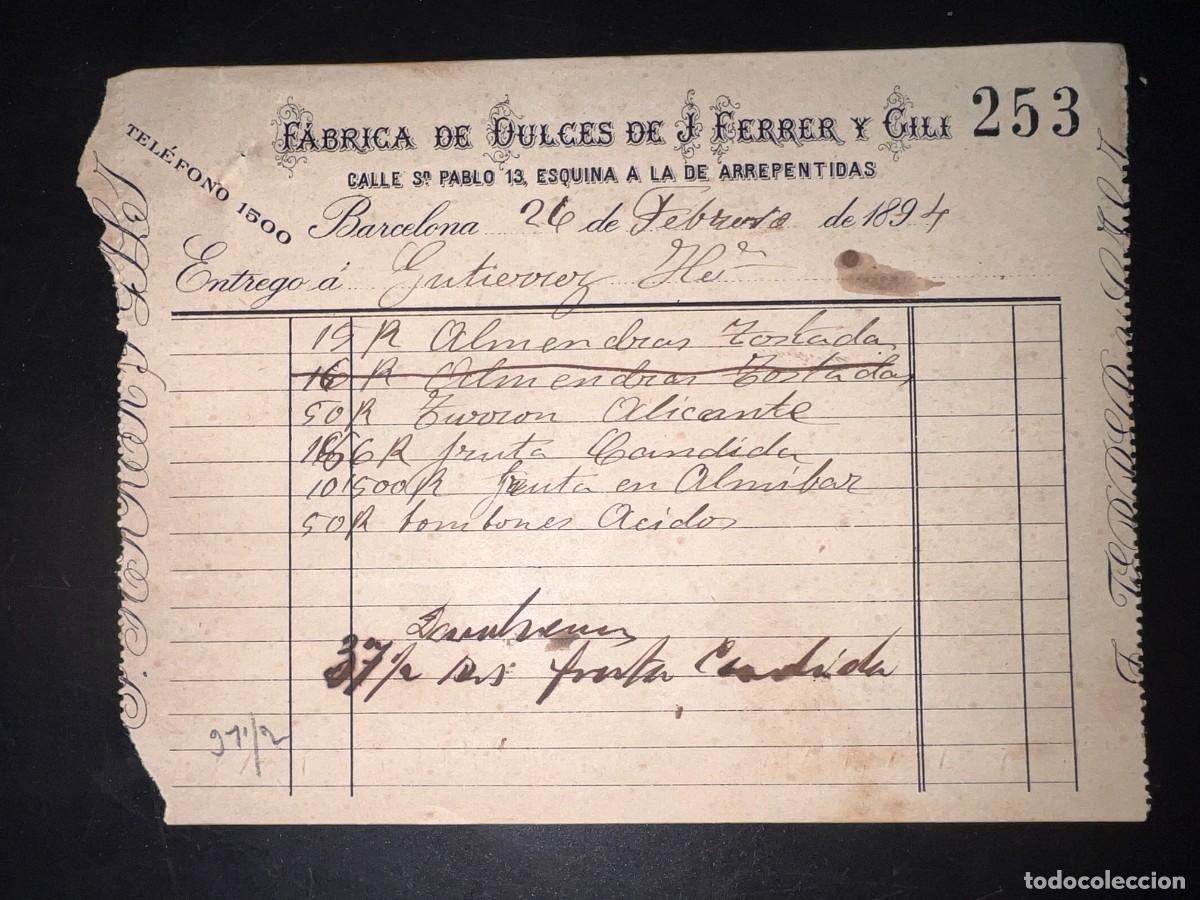 FÁBRICA DE DULCES DE J FERRER Y GILI 253
CALLE Sn PABLO 13, ESQUINA A LA DE ARREPENTIDAS
TELÉFONO 1500
Barcelona 26 de Febrero de 1894
Entrego á Gutierrez He
15 R Almendras Tostadas
16 R Almendras Tostadas
50 R Turron Alicante
R fruta Candida
10'500 R fruta en Almíbar
50 R bombones Acidos
37 1/2 fruta Candida
91 1/2
todocoleccion